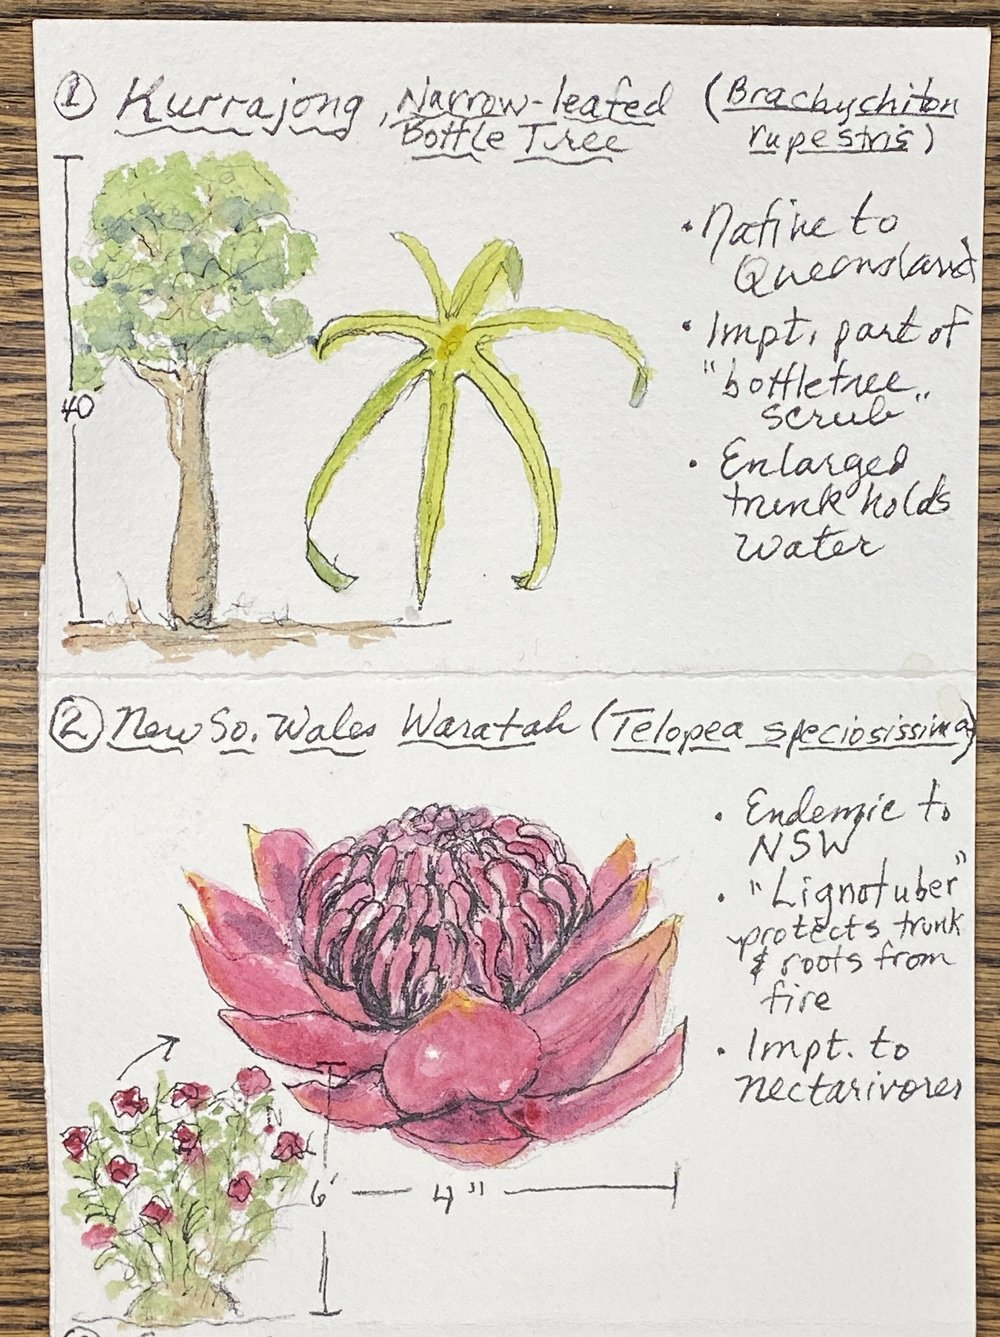 ① Kurrajong, Narrow-leafed
Bottle Tree
(Brachychiton
rupestris)
40
• Native to
Queensland
• Impt. part of
"bottletree
scrub"
• Enlarged
trunk holds
water
② New So. Wales Waratah (Telopea speciosissima)
• Endemic to
NSW
• "Lignotuber"
protects trunk
& roots from
fire
• Impt. to
nectarivores
6'
4"